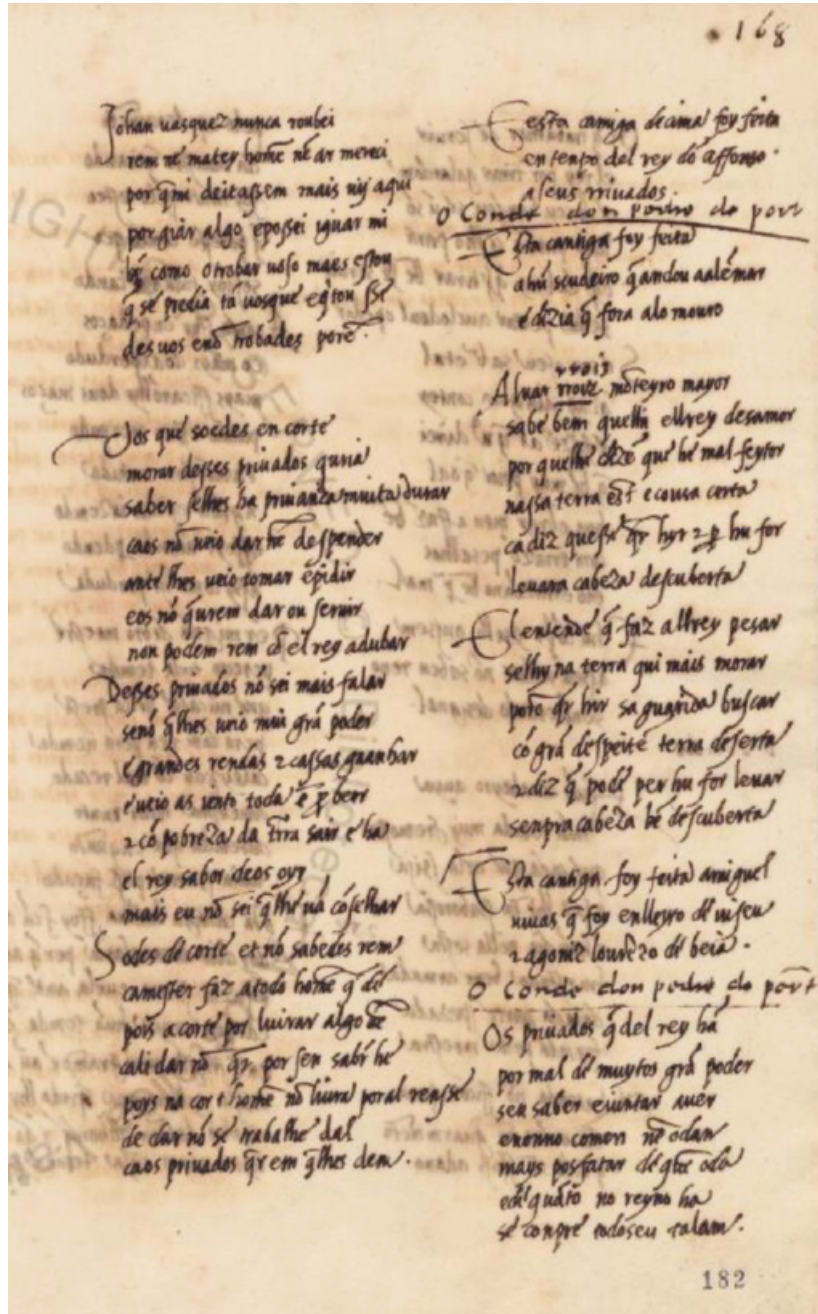 168
Johan uasquez nunca roubei
rem nē matey home nē ar mereci
por q̄ mi deitassem mais uij aqui
por gāar algo epossei iguar mi
bē como o trobar uoso maes estou
q̄ se predia tā uosque
des uos enō trobades porē.
Uos que soedes en corte
morar desses priuados quria
saber selhes ha priuanza muita durar
caos nō ueio dar nē despender
ante lhes ueio tomar e pidir
eos nō q̄urem dar ou seruir
non podem rem cō el rey adubar
Desses priuados nō sei mais falar
senō q̄ lhes ueio mui grā poder
e grandes rendas 2 cassas guanhar
e ueio as ient toda
2 cō pobreza da t̄rra sair e ha
el rey sabor deos oyr
mais eu nō sei q̄ lhe uā cōselhar
Sodes de corte et nō sabedes rem
ca mester faz a todo home q̄ dē
pois a corte por liurar algo
cali dar nō q̄r por sen sabr̄ he
poys na cort home nō liura por al
de dar nō se trabalhe dal
caos priuados q̄r em q̄ lhes dem.
E esta camiga decima foy feita
en tenpo del rey dō affonso.
a seus rriuados.
O Conde don pedro de port
Esta cantiga foy feita
a hū scudeiro q̄ andou aalēmar
e dizia q̄ fora alo mouro
rrois
Aluar rroiz mōteyro mayor
sabe bem quelhi ellrey desamor
por quelhe dizē que he mal feytor
nassa terra est ecousa certa
ca diz quesse q̄r hyr 2 p̄ hu for
leuara cabeza descuberta
El entende q̄ faz allrey pesar
selhy na terra qui mais morar
porē q̄r hir sa guarida buscar
cō grā despeite terra deserta
2 diz q̄ podē per hu for leuar
senpra cabeza bē descuberta
Esta cantiga foy feita a miguel
uiuas q̄ foy enllesro dē uiseu
2 a gomez lourēzo dē beia.
O Conde don pedro de port
Os priuados q̄ del rey hā
por mal dē muytos grā poder
seu saber e iuntar auer
e nonno comen nē odan
mays posfatar dē
edē quāto no reyno ha
se conpre todo seu talam.
182